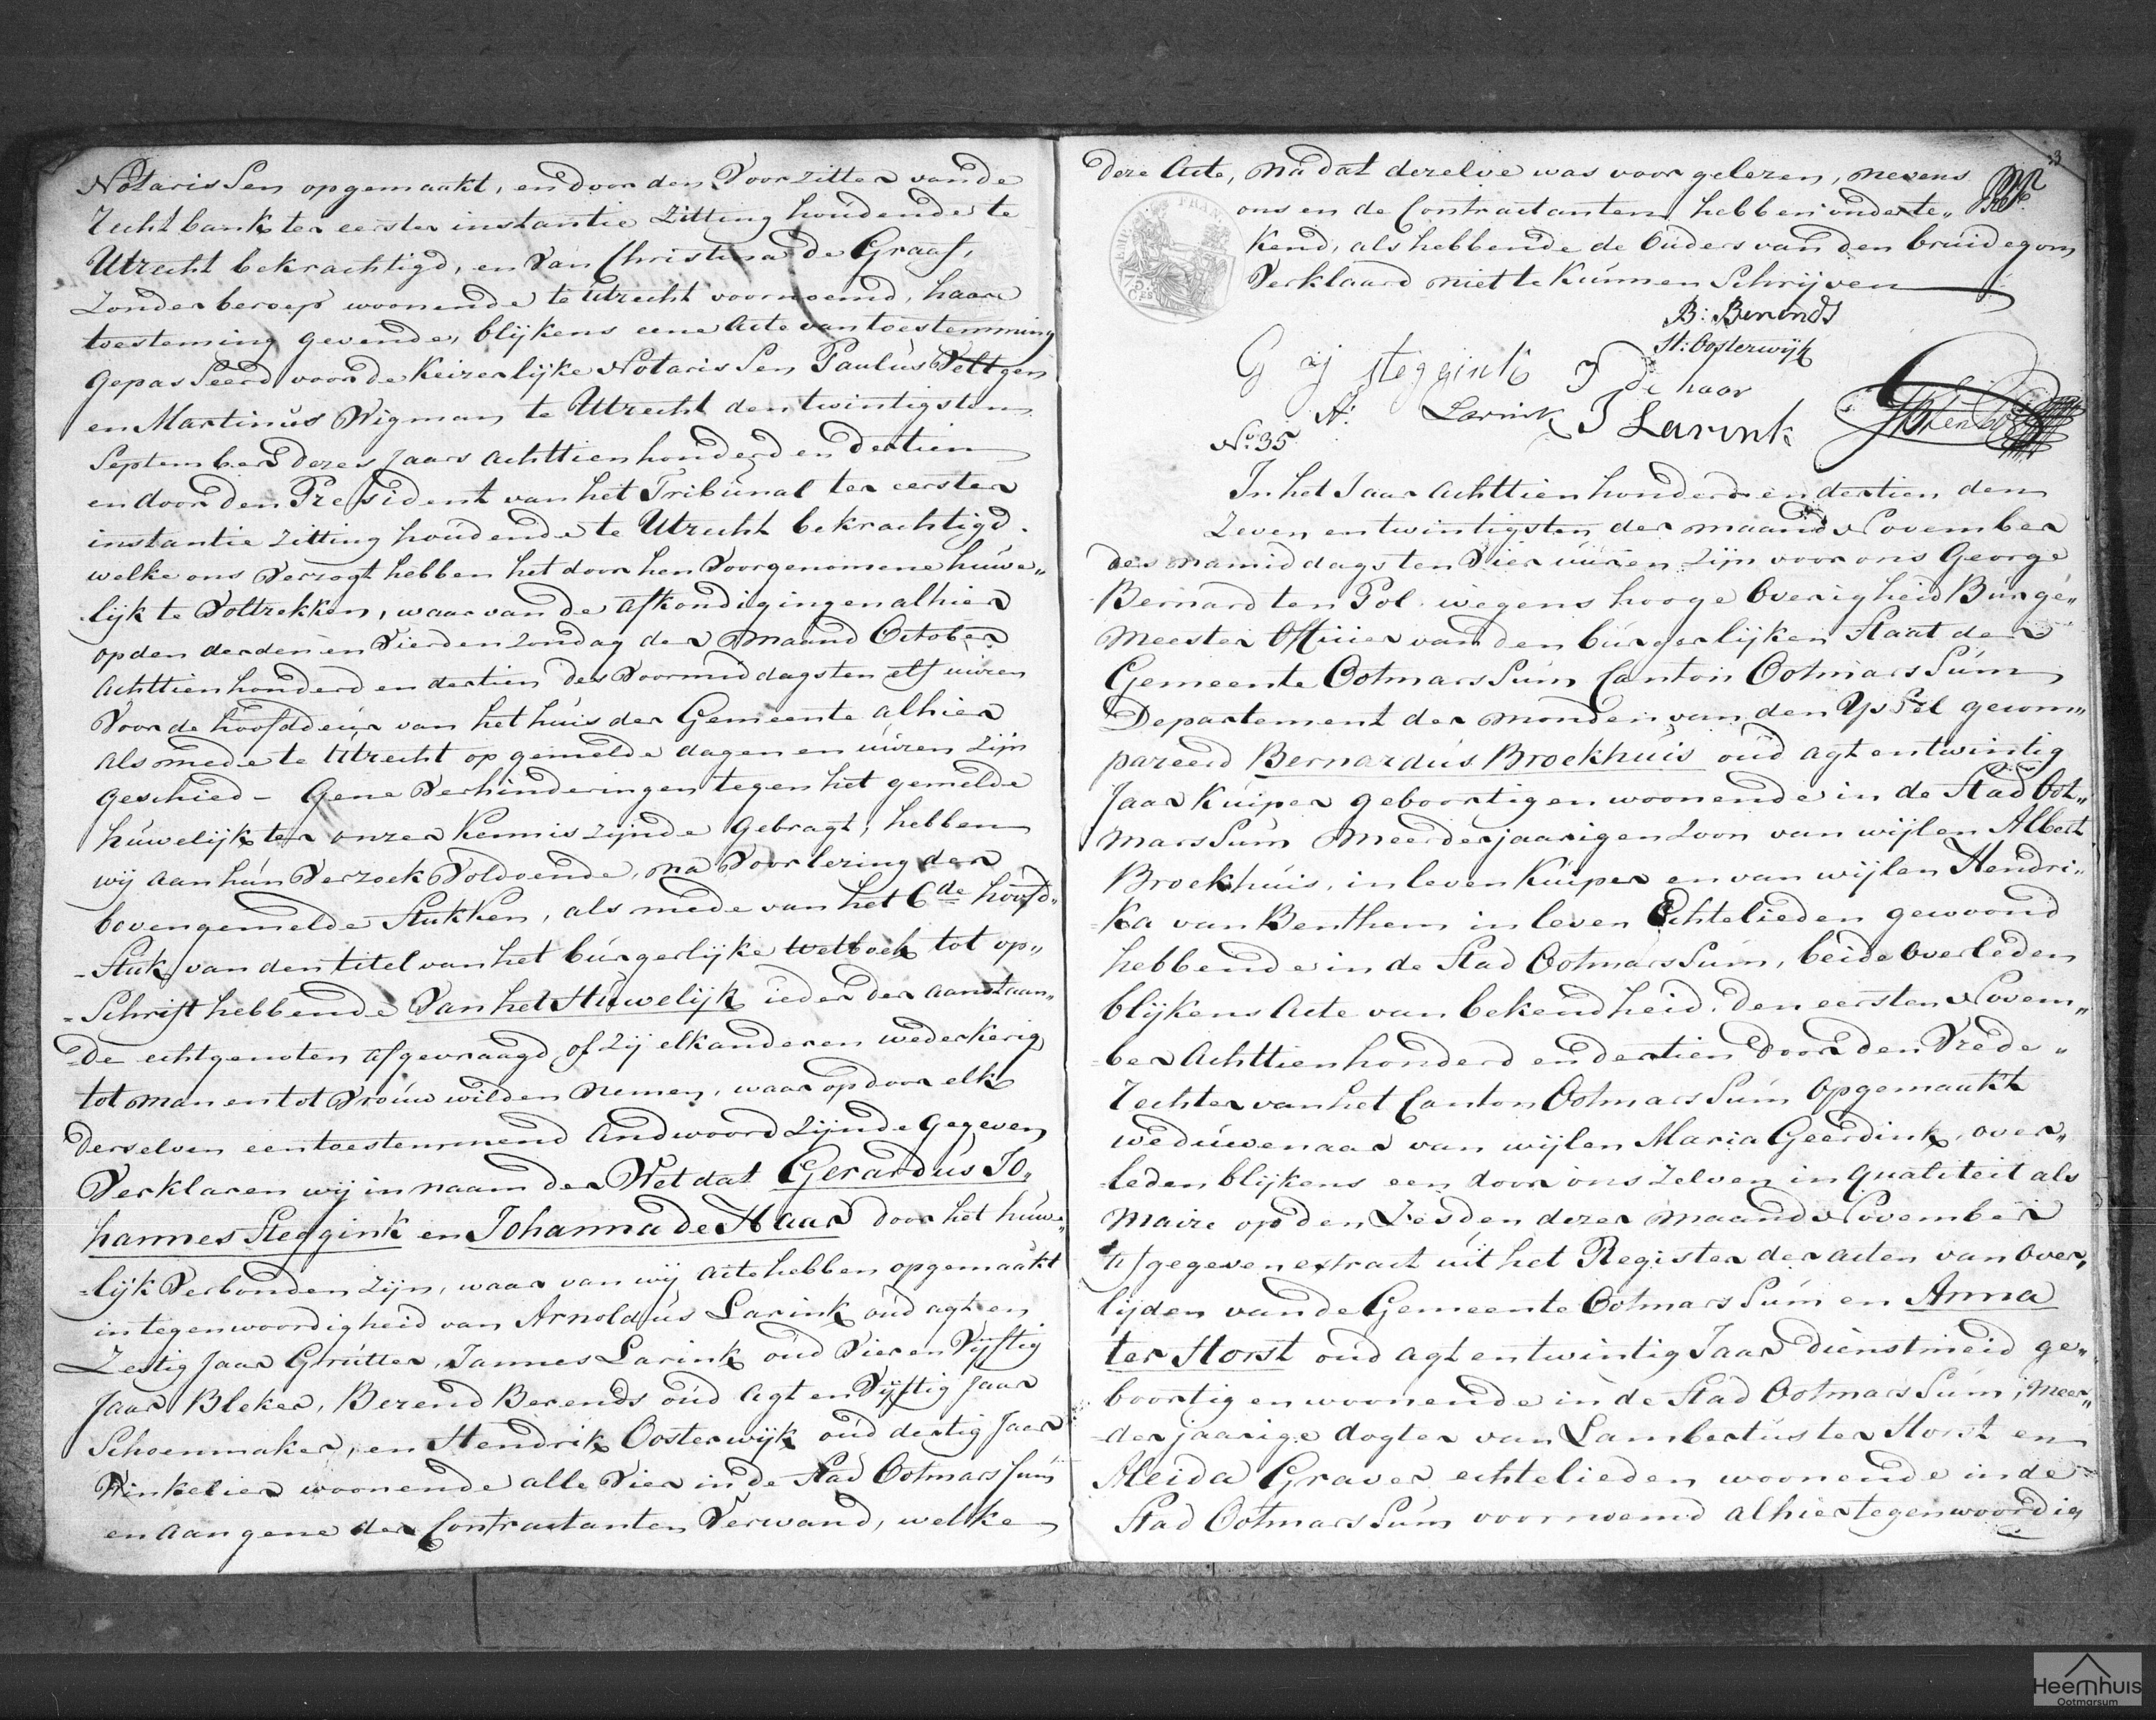 Notarissen opgemaakt, en door den Voorzitter van de
rechtbank ter eerster instantie zitting houdende te
Utrecht bekrachtigd, en van Christina de Graaf,
zonder beroep woonende te Utrecht voornoemd, haare
toesteming gevende, blijkens eene Acte van toestemming
gepasseerd voor de Keizerlijke Notarissen Paulus Veltgen
en Martinus Wigman te Utrecht den twintigsten
September dezes Jaars Achttienhonderd en dertien
en door den President van het Tribunal ter eerster
instantie zitting houdende te Utrecht bekrachtigd.
welke ons verzogt hebben het door hen voorgenomene huwe„
lijk te voltrekken, waar van de afkondigingen alhier
op den derden en vierden zondag der maand October
Achttienhonderd en dertien des voormiddags ten elf uuren
Voor de hoofddeur van het huis der Gemeente alhier
als mede te Utrecht op gemelde dagen en uuren zijn
geschied - Gene verhinderingen tegen het gemelde
huwelijk ter onzer kennis zijnde gebragt, hebben
wij aan hun verzoek voldoende, na voorlezing der
bovengemelde Stukken, als mede van het 6de hoofd„
-Stuk van den titel van het burgerlijke wetboek tot op„
-Schrift hebbende Van het Huwelijk ieder der aanstaan„
-de echtgenoten afgevraagd of zij elkanderen wederkerig
tot man en tot vrouw wilden nemen, waar op door elk
derselven een toestemmend Andwoord zijnde gegeven
Verklaren wij in naam der Wet dat Gerardus Jo„
hannes Steggink en Johanna de Haar door het huwe„
-lijk verbonden zijn, waar van wij Acte hebben opgemaakt
in tegenwoordigheid van Arnoldus Larink oud agt en
Zestig Jaar Grutter, Jannes Larink oud vier en Vijftig
Jaar Bleker, Berend Berends oud Agt en Vijftig Jaar
Schoenmaker, en Hendrik Oosterwijk oud dertig Jaar
Winkelier woonende alle vier in de Stad Ootmarssum
en aan gene der Contractanten Verwand, welke
deze Acte, na dat dezelve was voorgelezen, nevens
ons en de Contractanten hebben onderte„
kend, als hebbende de Ouders van den bruidegom
Verklaard niet te kunnen Schrijven
B: Berends
H: Oosterwijk
G J Steggink J de haar
A: Larink J Larink
No. 35
In het Jaar Achttien honderd en dertien den
Zeven en twintigsten der maand November
des namiddags ten Vier uuren zijn voor ons George
Bernard ten Pol wegens hooge Overigheid Burge„
meester Officier van den burgerlijken Staat der
Gemeente Ootmarssum Canton Ootmarssum
Departement der monden van den Yssel gecom„
pareerd Bernardus Broekhuis oud agt en twintig
Jaar Kuiper geboortig en woonende in de Stad Oot„
marssum meerderjaarigen Zoon van wijlen Albert
Broekhuis, in leven Kuiper en van wijlen Hendri„
-ka van Benthem in leven Echtelieden gewoond
hebbende in de Stad Ootmarssum, beide Overleden
blijkens Acte van bekendheid den eersten Novem„
-ber Achttienhonderd en dertien door den Vrede„
rechter van het Canton Ootmarssum Opgemaakt
weduwenaar van wijlen Maria Geerdink, over„
-leden blijkens een door ons zelven in qualiteit als
Maire op den Zesden dezer maand November
afgegeven extract uit het Register der acten van Over„
lijden van de Gemeente Ootmarssum en Anna
ter Horst oud agt en twintig Jaar dienstmeid ge„
boortig en woonende in de Stad Ootmarssum, meer„
-derjaarige dogter van Lambertus ter Horst en
Aleida Graver echtelieden woonende in de
Stad Ootmarssum voornoemd alhier tegenwoordig
Heemhuis
Ootmarsum